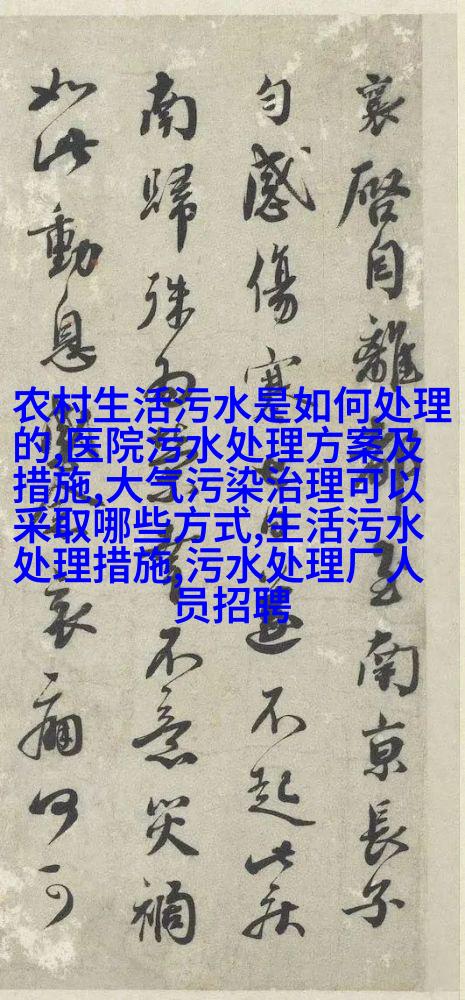 农村生活污水是如何处理
的,医院污水处理方案及
措施,大气污染治理可以
采取哪些方式,生活污水
处理措施,污水处理厂人
员招聘
襄啓自離都至南京長子
匀感傷寒日遂不起此疾
南歸殊為不意災禍
如此動息哀痛何可